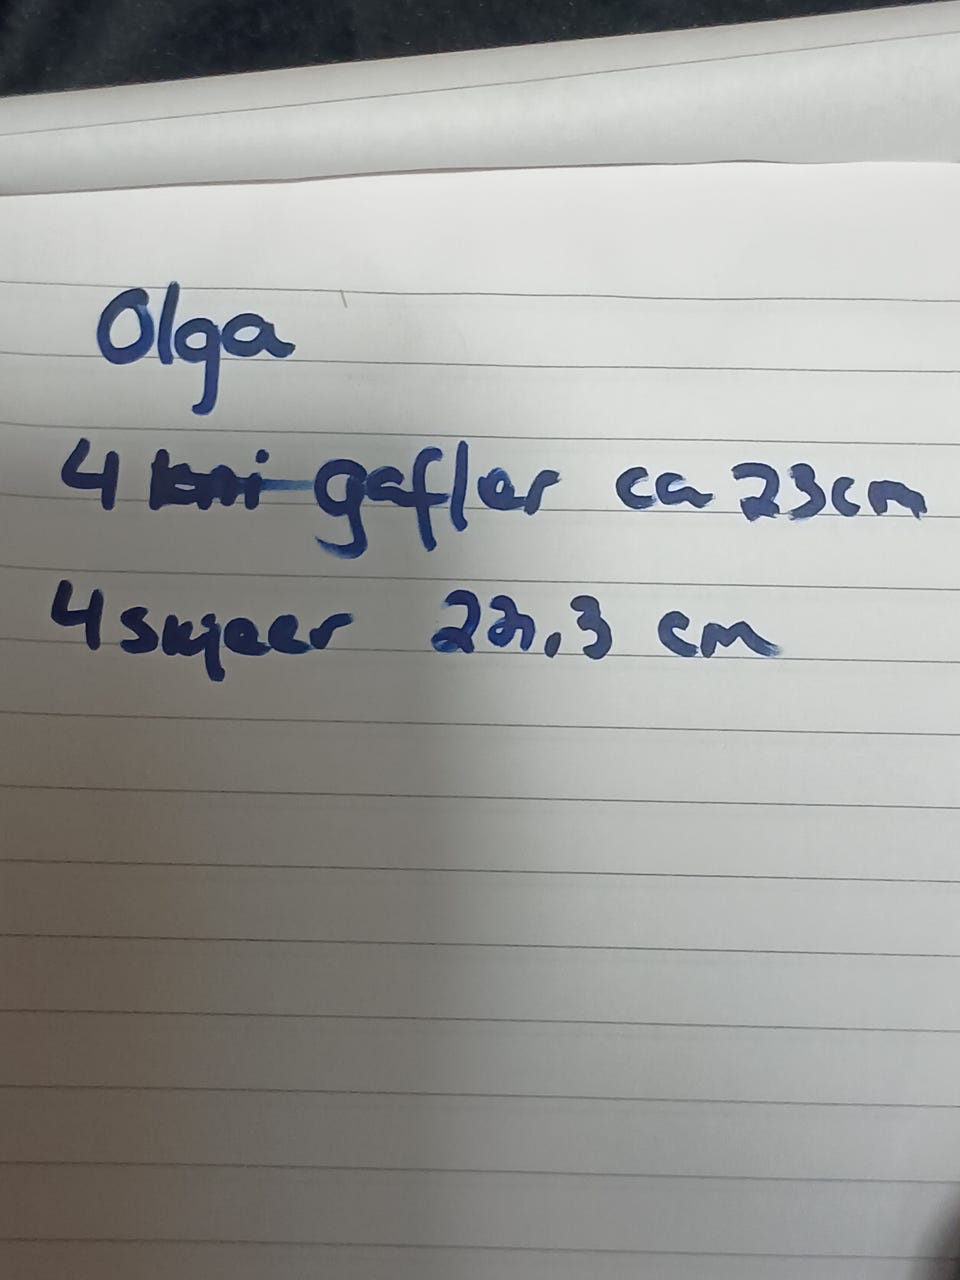 Olga
4 gafler ca 23cm
4 skjeer 22,3 cm